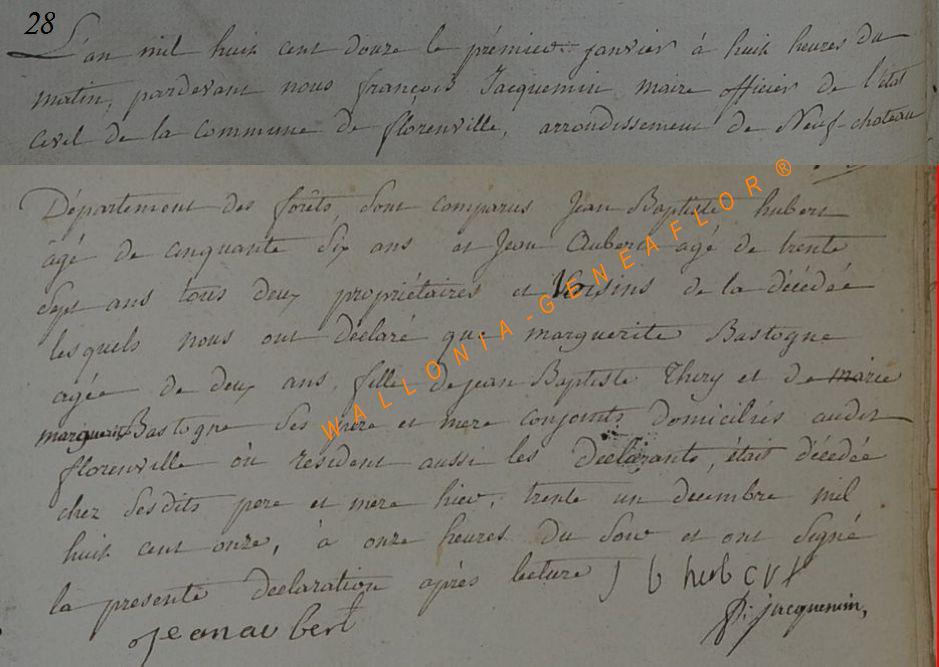 28
L'an mil huit cent douze le prémier janvier à huit heures du
matin, pardevant nous françois Jacquemin maire officier de l'état
civil de la commune de florenville, arrondissement de Neuf-chateau
Département des forêts, sont comparus Jean Baptiste hubert
âgé de cinquante six ans et Jean Aubert agé de trente
sept ans tous deux propriétaires et Voisins de la décédée
lesquels nous ont déclaré que marguerite Bastogne
agée de deux ans, fille de jean Baptiste Thiry et de marie
marguerite Bastogne ses pere et mere conjoints domiciliés audit
florenville où resident aussi les déclarants, était décédée
chez sesdits pere et mere hier, trente un decembre mil
huit cent onze, à onze heures du soir et ont signé
la presente declaration après lecture J b hubert
jean aubert
f: jacquemin,
WALLONIA-GENEAFLOR ®